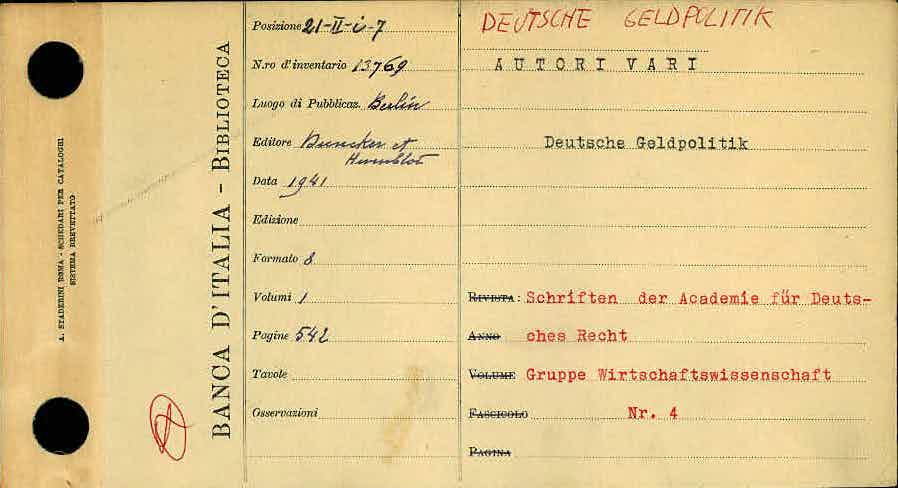 A. STADERINI ROMA - SCHEDARI PER CATALOGHI
SISTEMA BREVETTATO
BANCA D'ITALIA - BIBLIOTECA
Posizione 21-II-i-7
N.ro d'inventario 13769
Luogo di Pubblicaz. Berlin
Editore Duncker et
Humblot
Data 1941
Edizione
Formato 8
Volumi 1
Pagine 542
Tavole
Osservazioni
DEUTSCHE GELDPOLITIK
AUTORI VARI
Deutsche Geldpolitik
RIVISTA: Schriften der Academie für Deuts-
ANNO ches Recht
VOLUME Gruppe Wirtschaftswissenschaft
FASCICOLO Nr. 4
PAGINA